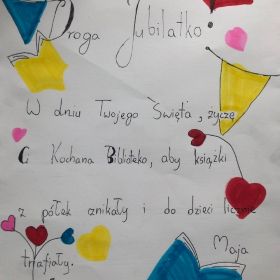 Droga Jubilatko!
W dniu Twojego Święta, życzę
Ci Kochana Biblioteko, aby książki
z półek znikały i do dzieci licznie
trafiały.
Maja